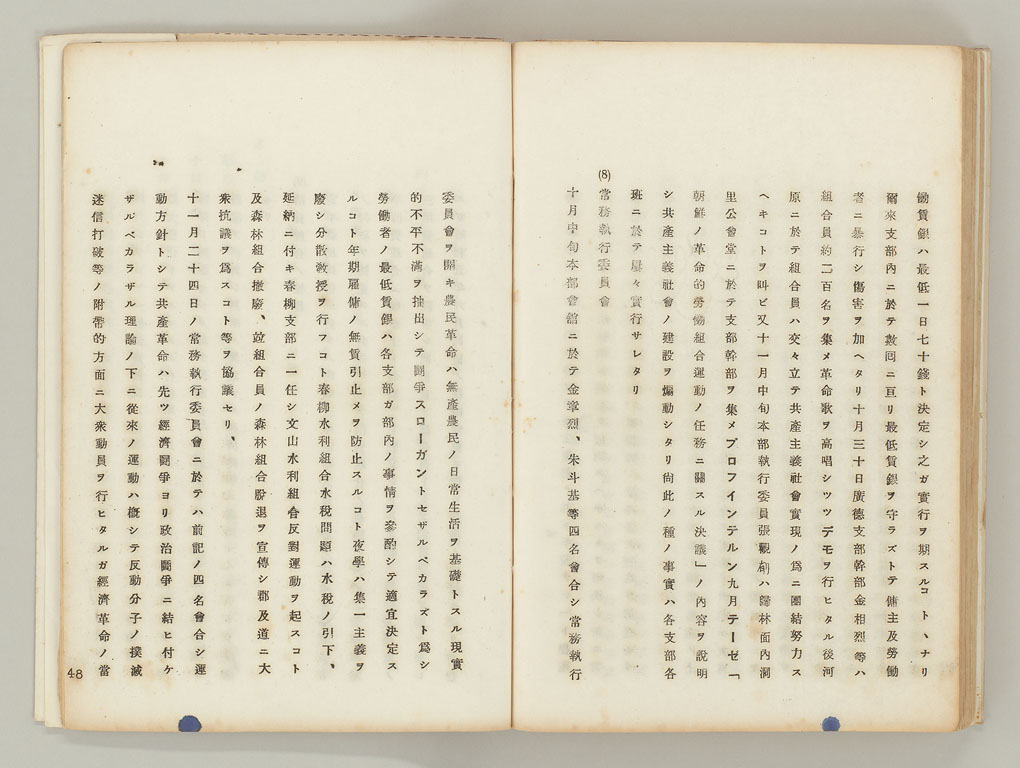 働賃銀ハ最低一日七十錢ト決定シ之ガ實行ヲ期スルコトヽナリ
爾來支部內ニ於テ數囘ニ亘リ最低賃銀ヲ守ラズトテ傭主及勞働
者ニ暴行シ傷害ヲ加ヘタリ十月三十日廣德支部幹部金相烈等ハ
組合員約二百名ヲ集メ革命歌ヲ高唱シツツデモヲ行ヒタル後河
原ニ於テ組合員ハ交々立テ共產主義社會實現ノ爲ニ團結努力ス
ヘキコトヲ叫ビ又十一月中旬本部執行委員張觀ハ歸林面內洞
里公會堂ニ於テ支部幹部ヲ集メプロフインテルン九月テーゼ「
朝鮮ノ革命的勞働組合運動ノ任務ニ關スル決議」ノ內容ヲ說明
シ共產主義社會ノ建設ヲ煽動シタリ尙此ノ種ノ事實ハ各支部各
班ニ於テ屢々實行サレタリ
(8) 常務執行委員會
十月中旬本部會館ニ於テ金章烈、朱斗基等四名會合シ常務執行
委員會ヲ開キ農民革命ハ無產農民ノ日常生活ヲ基礎トスル現實
的不平不滿ヲ抽出シテ鬪爭スローガントセザルベカラズト爲シ
勞働者ノ最低賃銀ハ各支部ガ部內ノ事情ヲ參酌シテ適宜決定ス
ルコト年期雇傭ノ無賃引止メヲ防止スルコト夜學ハ集一主義ヲ
廢シ分散敎授ヲ行フコト春柳水利組合水稅問題ハ水稅ノ引下、
延納ニ付キ春柳支部ニ一任シ文山水利組合反對運動ヲ起スコト
及森林組合撤廢、竝組合員ノ森林組合脫退ヲ宣傳シ郡及道ニ大
衆抗議ヲ爲スコト等ヲ協議セリ、
十一月二十四日ノ常務執行委員會ニ於テハ前記ノ四名會合シ運
動方針トシテ共產革命ハ先ツ經濟鬪爭ヨリ政治鬪爭ニ結ヒ付ケ
ザルベカラザル理論ノ下ニ從來ノ運動ハ槪シテ反動分子ノ撲滅
迷信打破等ノ附帶的方面ニ大衆動員ヲ行ヒタルガ經濟革命ノ當
48